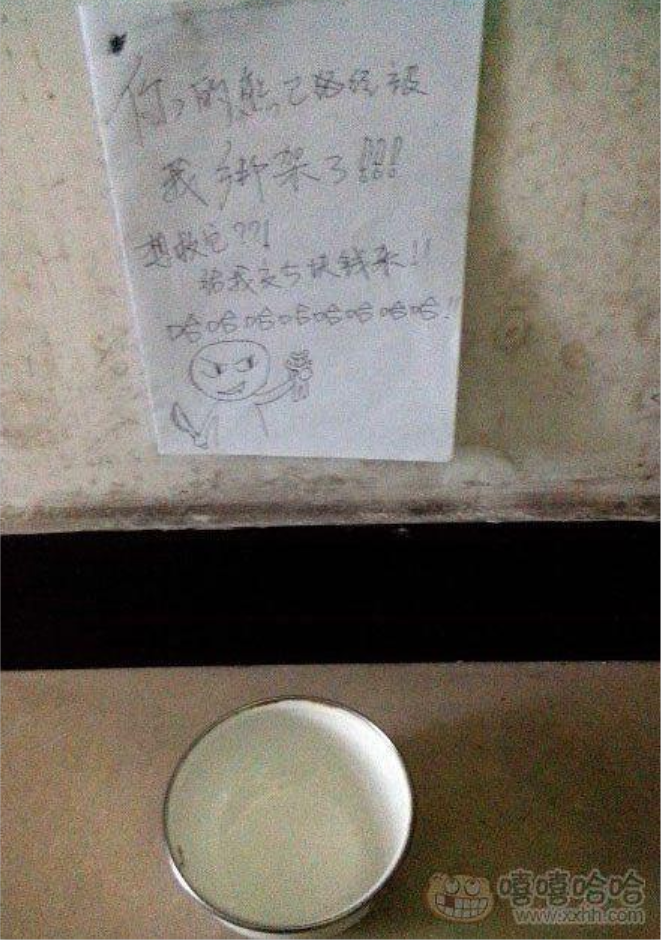 你的熊已经被
我绑架了!!!
想救它??!
给我交5块钱来!!
哈哈哈哈哈哈哈哈!!
嘻嘻哈哈
www.xxhh.com